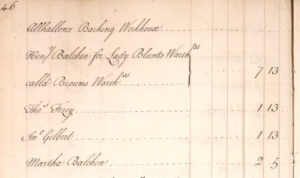 46
Allhallows Barking Workhouse
Henʸ Balchen for Lady Blunts Warehᵒˢ
calld Browns Warehᵒˢ 7 13
Thoˢ Furey 1 13
Jnᵒ Gilbert 1 13
Martha Balchen 2 5